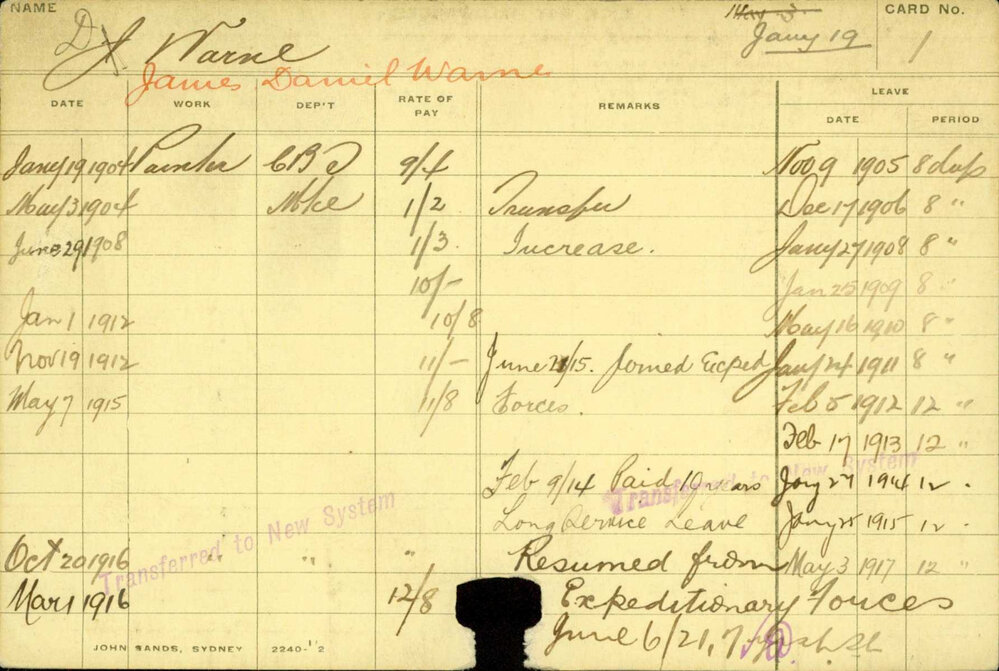 NAME
D J Warne
James Daniel Warne
May 3
Jany 19
CARD No.
1
DATE WORK DEP'T RATE OF PAY REMARKS LEAVE
DATE PERIOD
Jany 19 1904 Painter 9/4 Nov 9 1905 8 days
May 3 1904 1/2 Transfer Dec 17 1906 8 "
June 29 1908 1/3 Increase. Jany 27 1908 8 "
10/- Jan 25 1909 8 "
Jan 1 1912 10/8 May 16 1910 8 "
Nov 19 1912 11/- June 21/15. Joined Exped Jany 24 1911 8 "
May 7 1915 11/8 Forces. Feb 5 1912 12 "
Feb 17 1913 12 "
Feb 9/14 Paid 10 years Jany 27 1914 12 .
Long Service Leave Jany 25 1915 12 .
Transferred to New System
Transferred to New System
Oct 20 1916 " " " Resumed from May 3 1917 12 "
Mar 1 1916 12/8 Expeditionary Forces
June 6/21,
JOHN SANDS, SYDNEY 2240-12